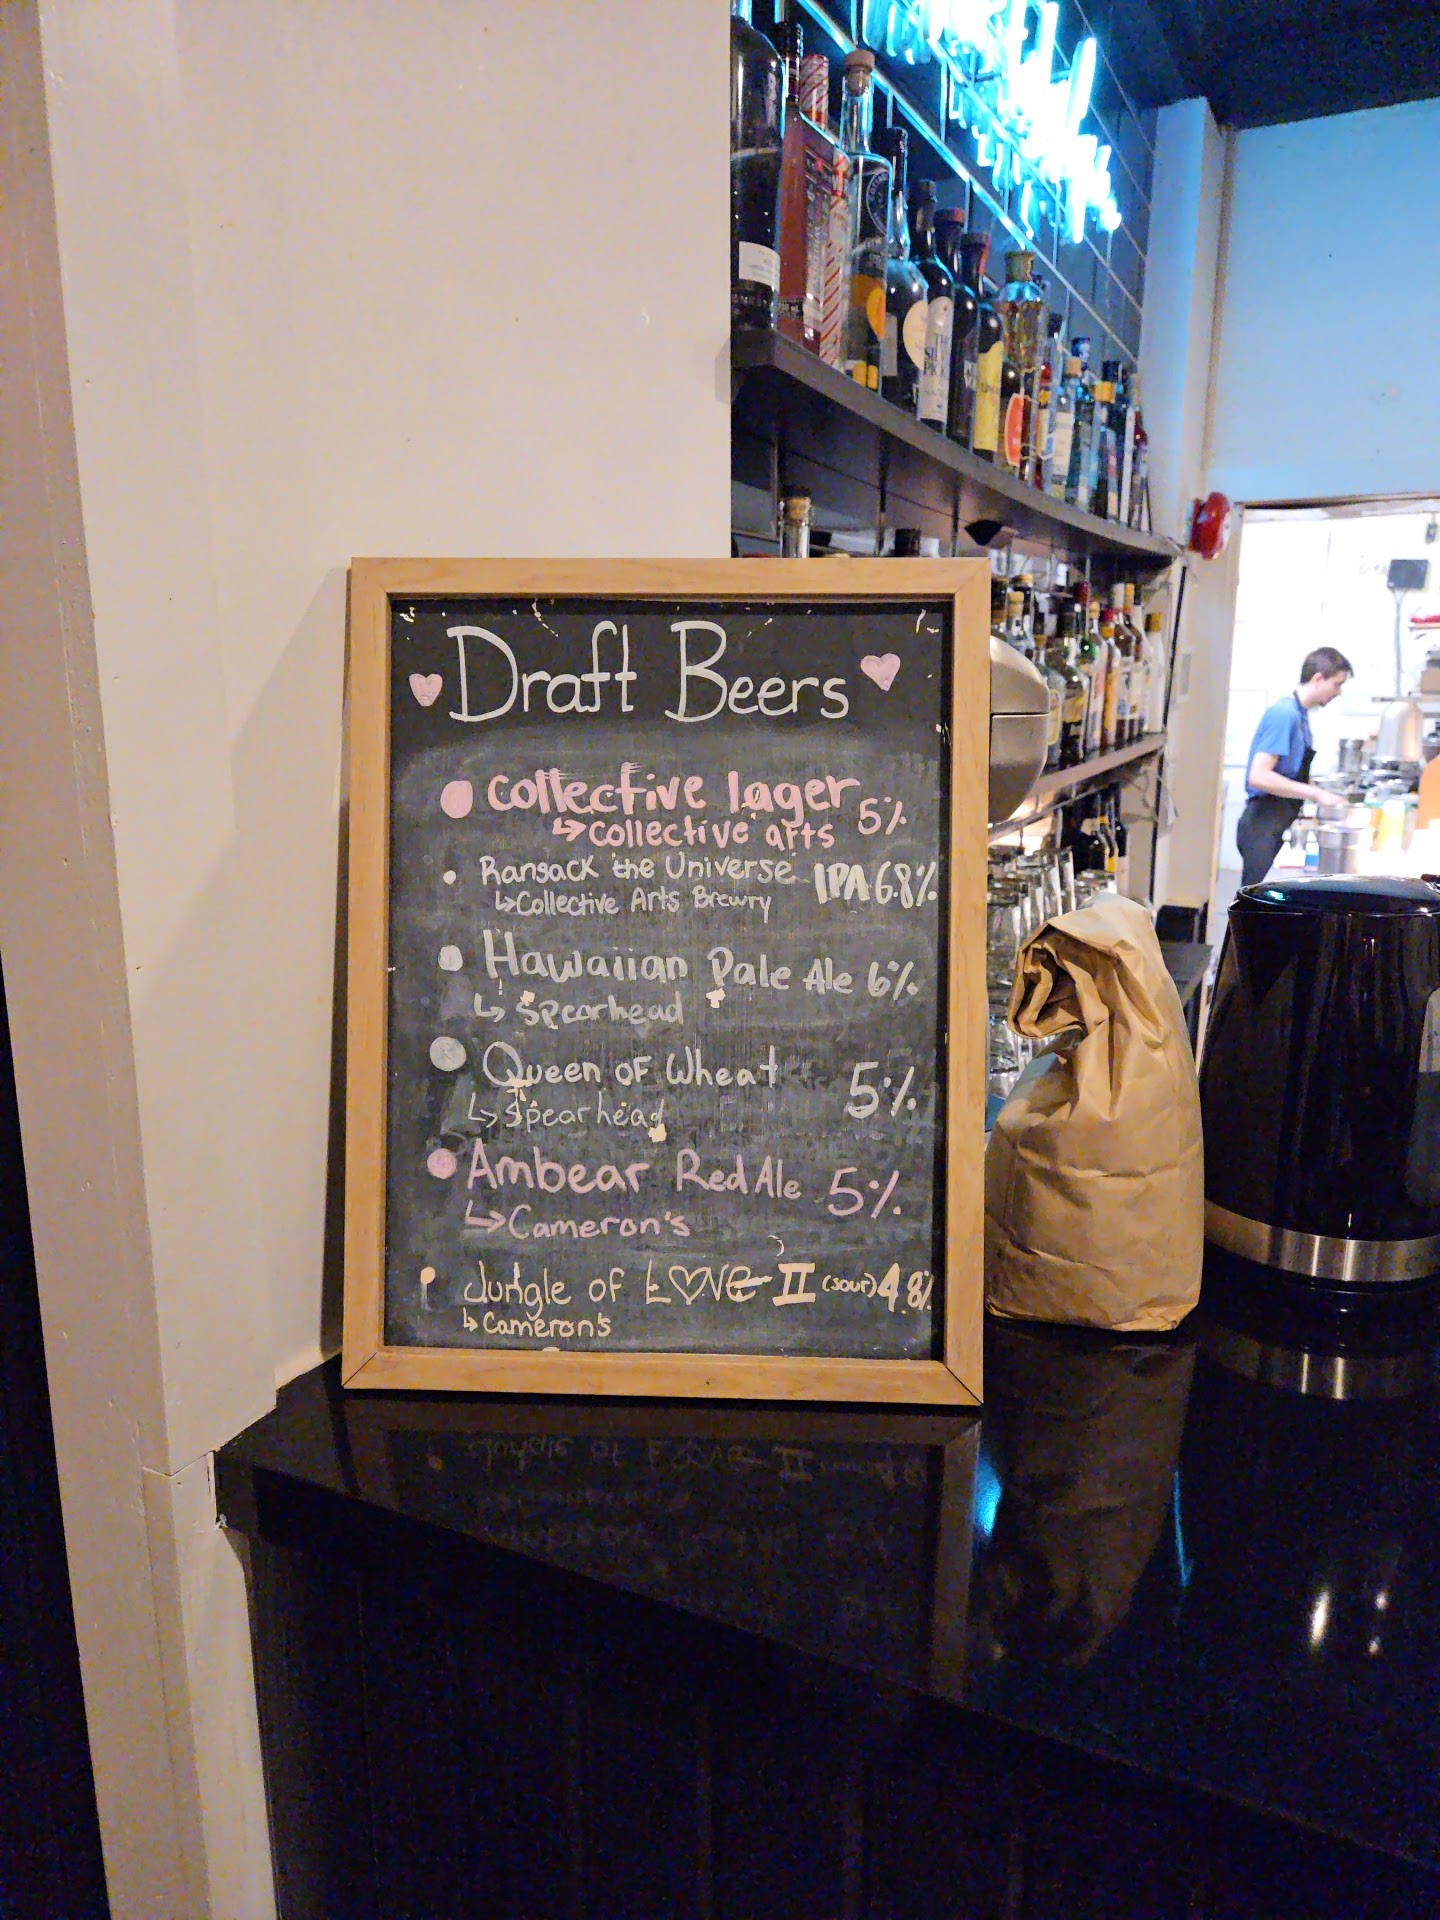 Draft Beers
Collective lager 5%
↳ Collective arts
Ransack the Universe IPA 6.8%
↳ Collective Arts Brewry
Hawaiian Pale Ale 6%
↳ Spearhead
Queen of Wheat 5%
↳ Spearhead
Ambear Red Ale 5%
↳ Cameron's
Jungle of LOVE II (sour) 4.8%
↳ Cameron's